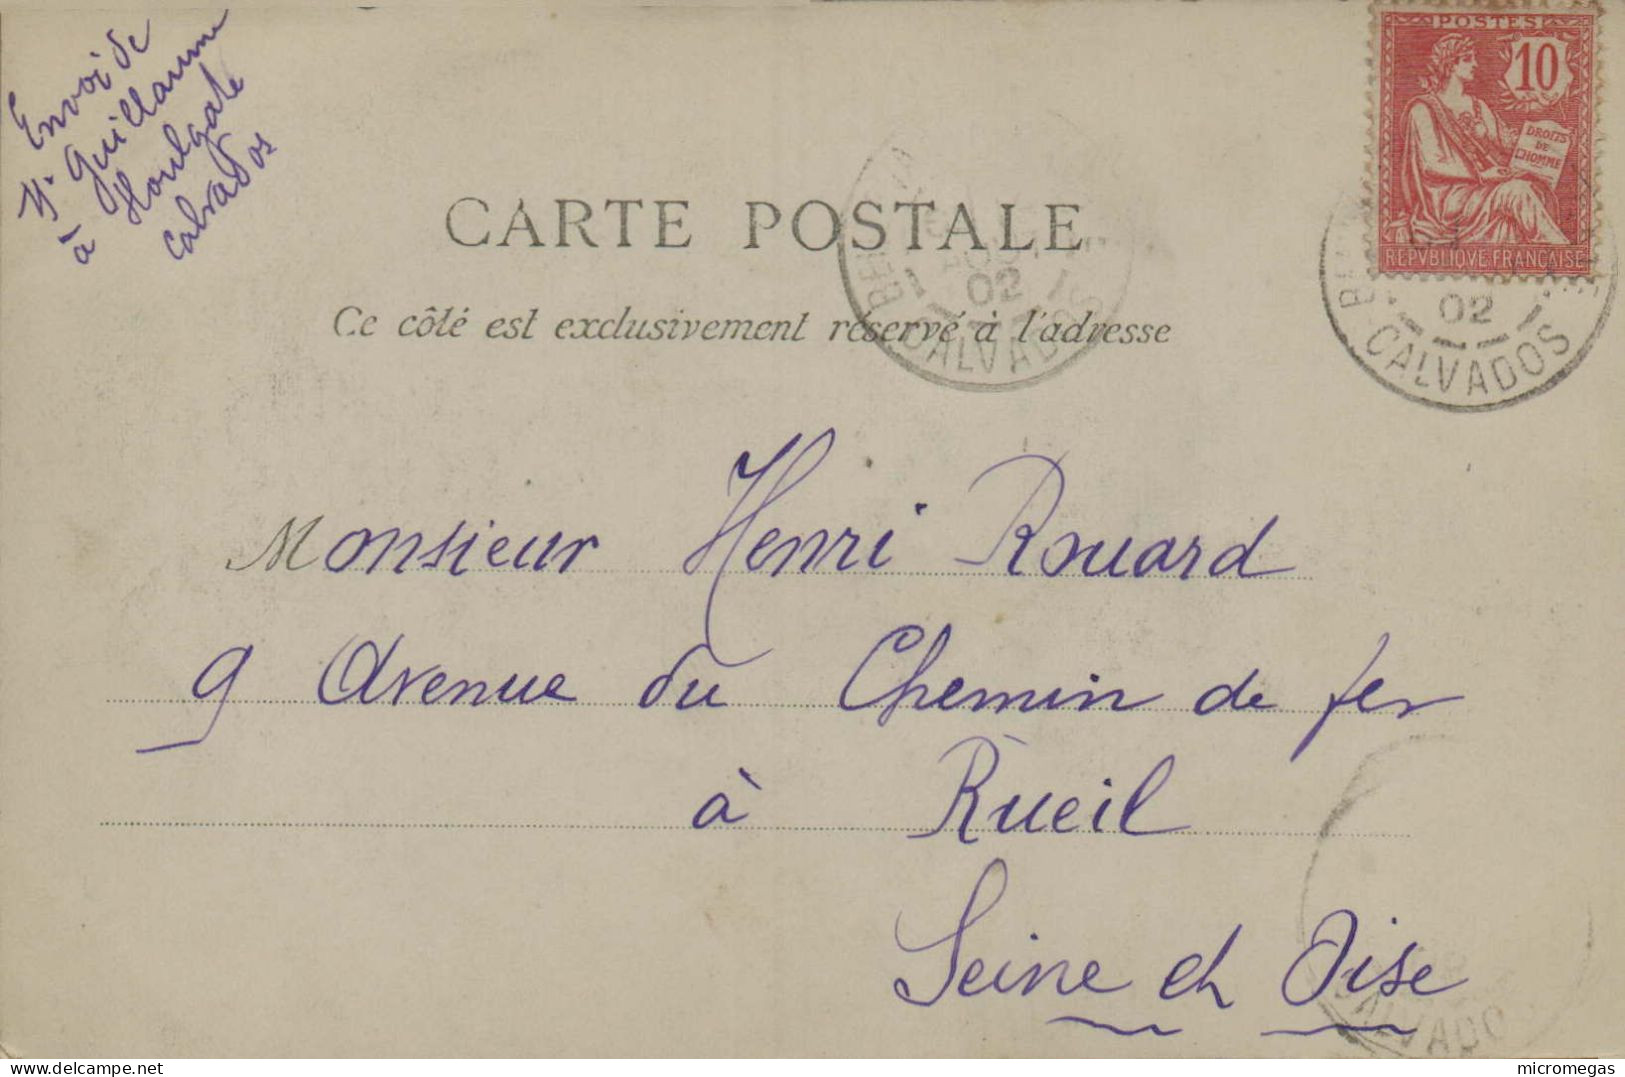 Envoi de
Mr Guillaume
à Houlgate
Calvados
POSTES
10
DROITS
DE
L'HOMME
REPVBLIQVE FRANÇAISE
CARTE POSTALE
02
CALVADOS
02
CALVADOS
Ce côté est exclusivement réservé à l'adresse
Monsieur Henri Rouard
9 Avenue du Chemin de fer
à Rueil
Seine et Oise
CALVADOS
delcampe.net
micromegas